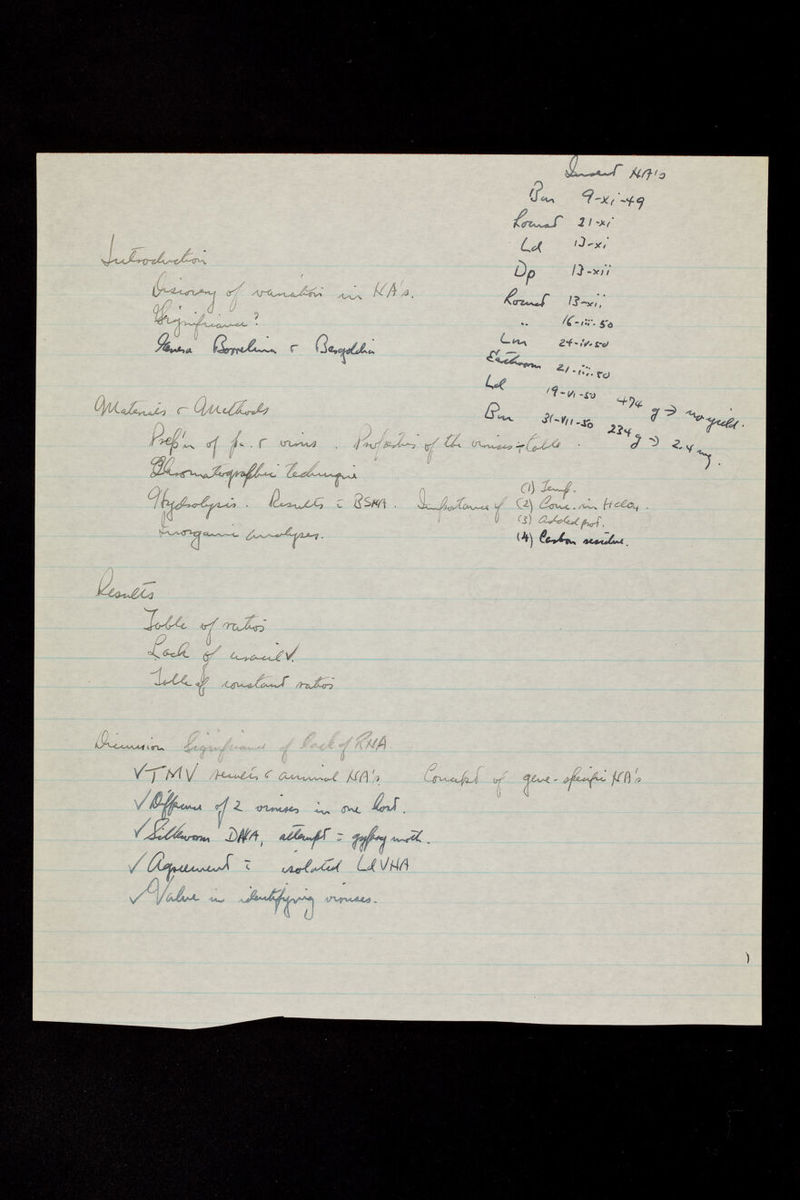 Insect NA's
Bm 9-xi-49
Locust 21-xi
Ld 13-xi
Dp 13-xii
Locust 13-xii
" 16-iii-50
Lm 24-iv-50
Earthworm 21-iii-50
Ld 19-vi-50 474 g → no yield.
Bm 31-VII-50 234 g → 2.4 mg.
Introduction
Discovery of variation in NA's.
Significance?
Genera Borrelina & Bergoldia
Materials & Methods
Prep'n of & virus. Properties of the viruses - table.
Chromatographic technique
Hydrolysis. Results c̄ BSNA. Importance of (1) Temp.
(2) Conc. in HClO4.
(3) Added prot.
(4) Carbon residue.
Inorganic analyses.
Results
Table of ratios
Lack of uracil ✓.
Table of constant ratios
Discussion Significance of lack of RNA
✓ TMV results & animal NA's Concept of gene-specific NA's
✓ Difference of 2 viruses in one host.
✓ Silkworm DNA, attempt c̄ gypsy moth.
✓ Agreement c̄ isolated LdVNA
✓ Value in identifying viruses.